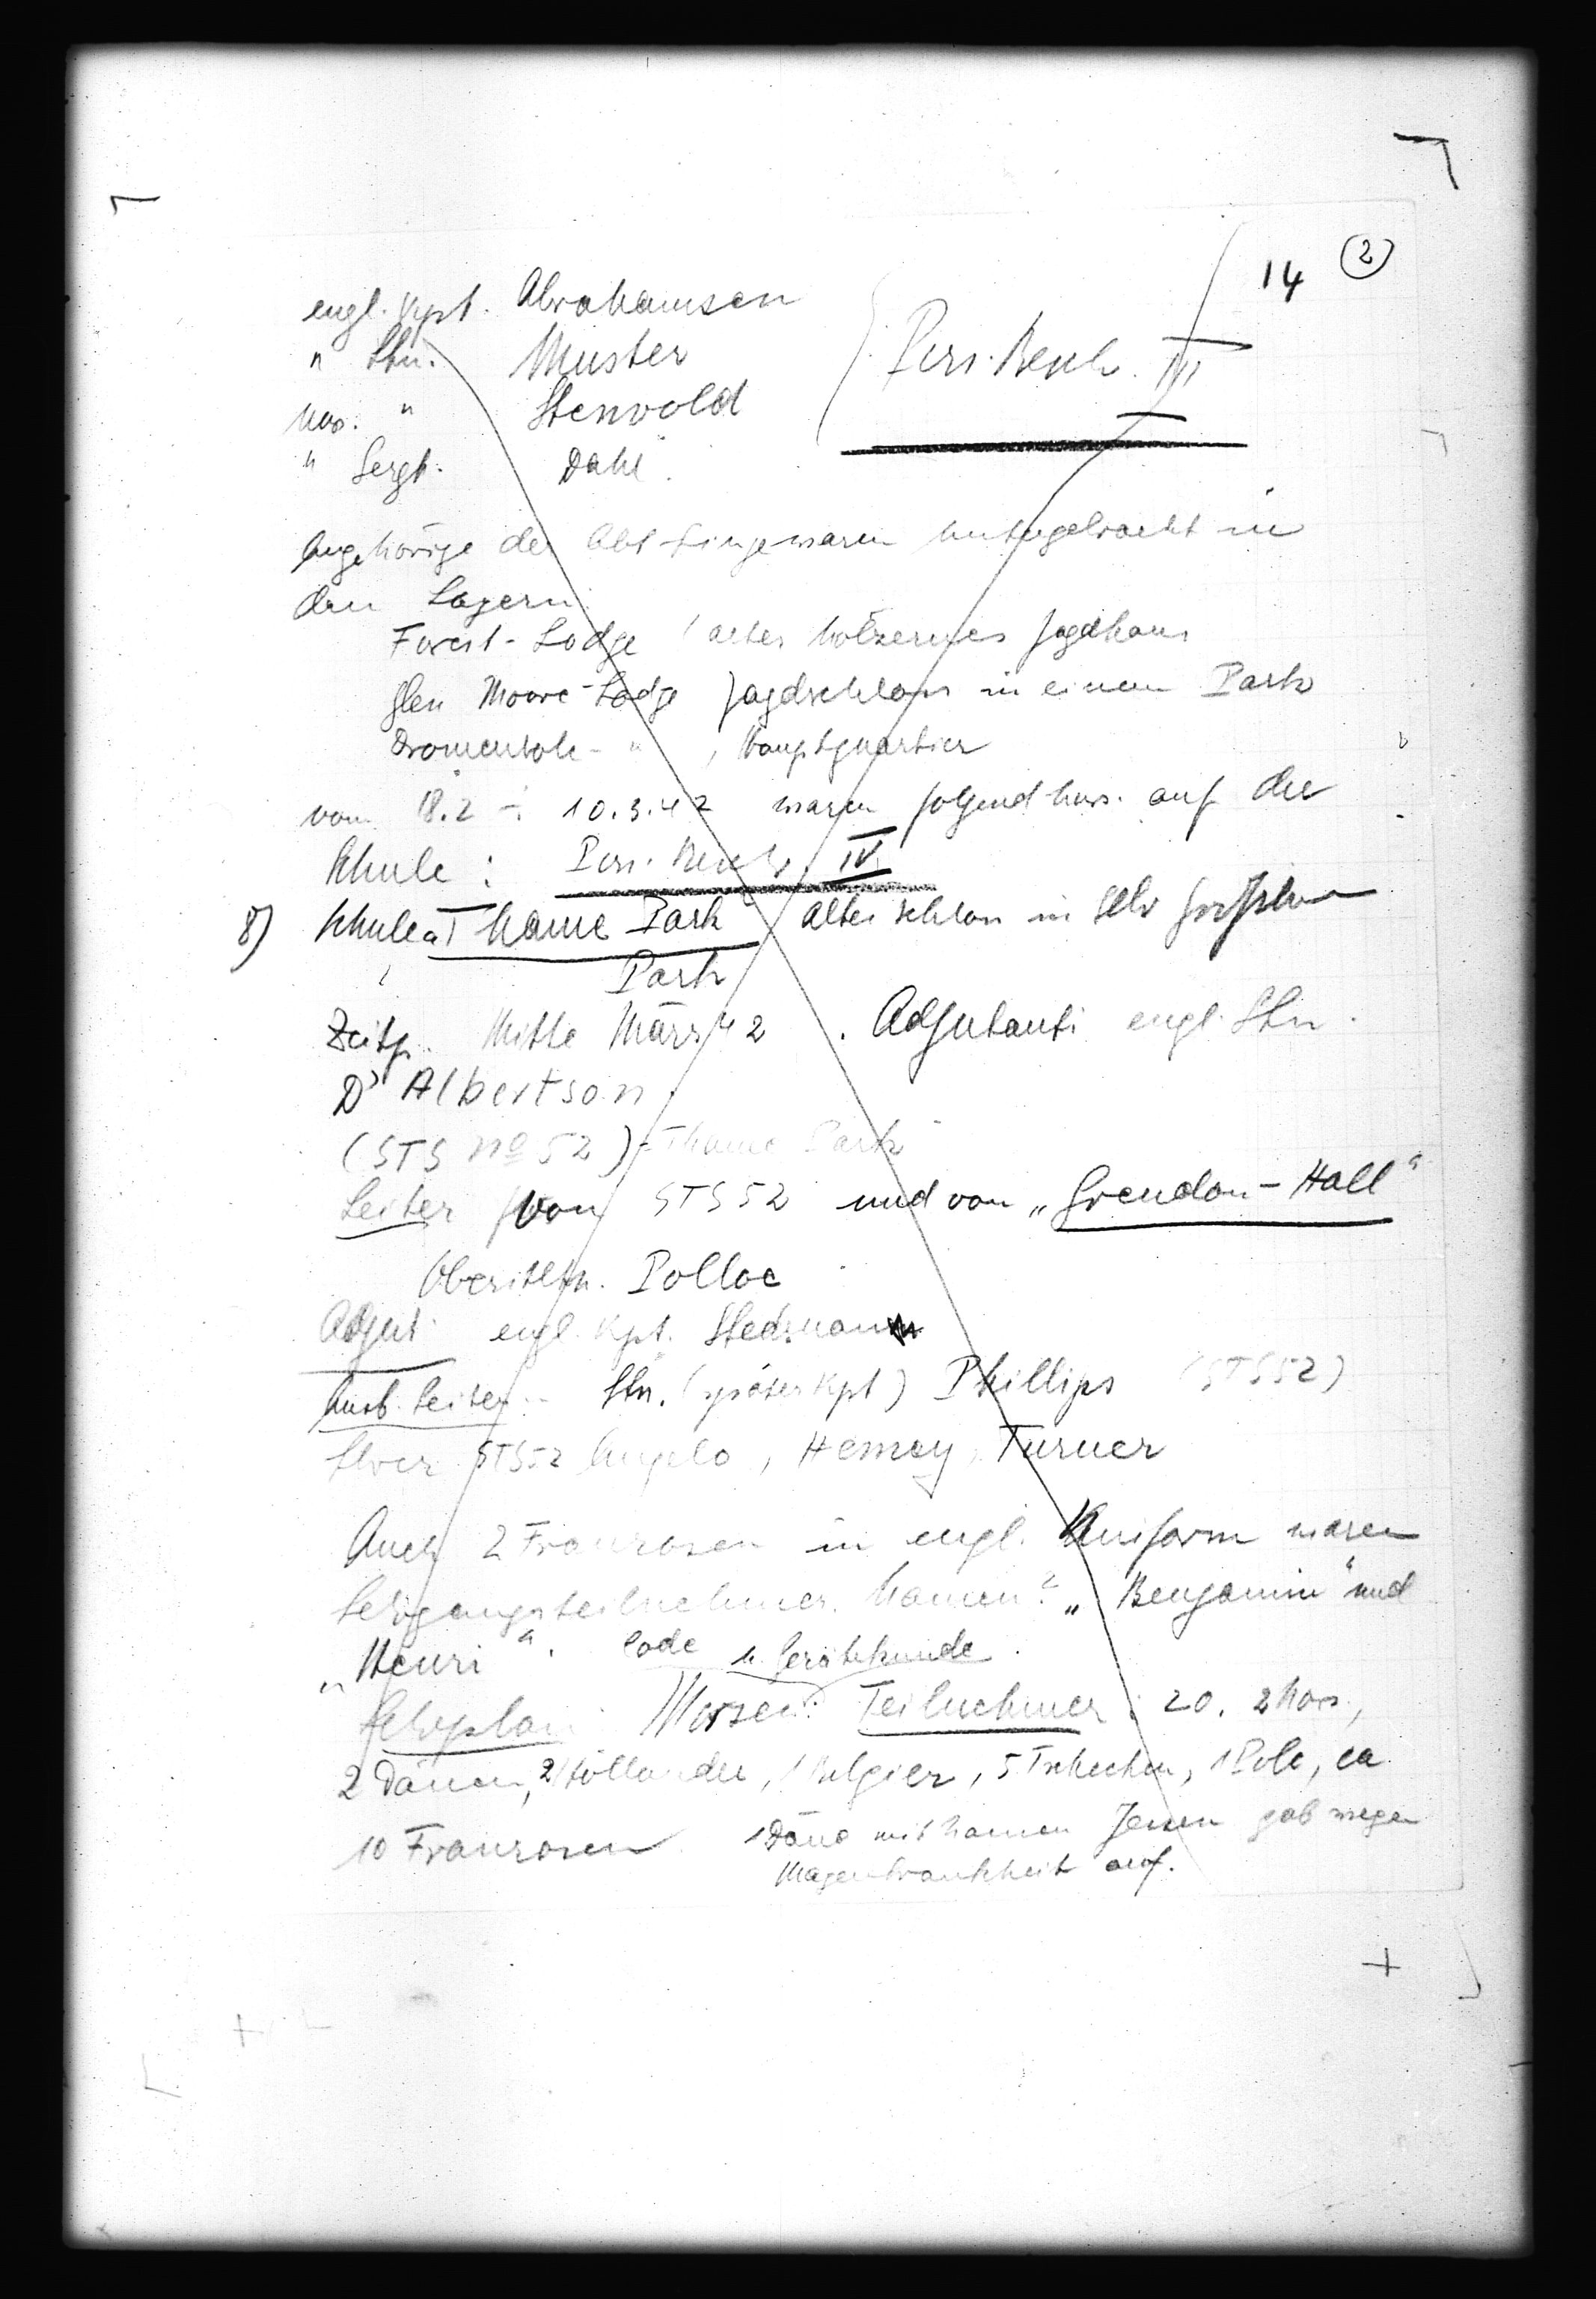 14 (2)
engl. Kpt. Abrahamsen
" Ltn. Munster
Pers. Besch. III
nor. " Stenvold
" Sergt. Dahl
Angehörige der Abt Linge waren untergebracht in
den Lagern:
Forest-Lodge altes hölzernes Jagdhaus
Glen Moore-Lodge Jagdschloss in einem Park
Dromentole - " , Hauptquartier
vom 18.2 ÷ 10.3.42 waren folgend nor. auf der
Schule : Pers. Besch. IV
8) Schule "Thame Park" altes Schloss in sehr
Park
Zeitp. Mitte März 42. Adjutant: engl. Ltn.
D' Albertson
(STS No 52) - Thame Park
Leiter von STS 52 und von „Grendon-Hall"
Oberstltn. Polloc
Adjut. engl. Kpt. Stedman
Ausb. Leiter Ltn. (später Kpt) Phillips (STS52)
STS52 Angelo, Hemey, Turner
Auch 2 Franzosen in engl. Uniform waren
Lehrgangsteilnehmer. Namen? „Benjamin" und
„Henri". Code u. Gerätekunde.
Lehrplan: Morsen. Teilnehmer: 20. 2 Nor.,
2 Dänen, 2 Holländer, 1 Belgier, 5 Tschechen, 1 Pole, ca
10 Franzosen 1 Däne mit Namen Jensen gab wegen
Magenkrankheit auf.